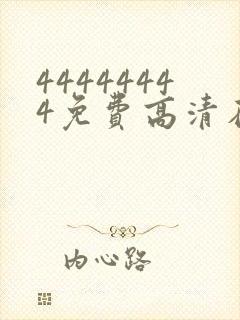 4444444
4免費高清
内心路